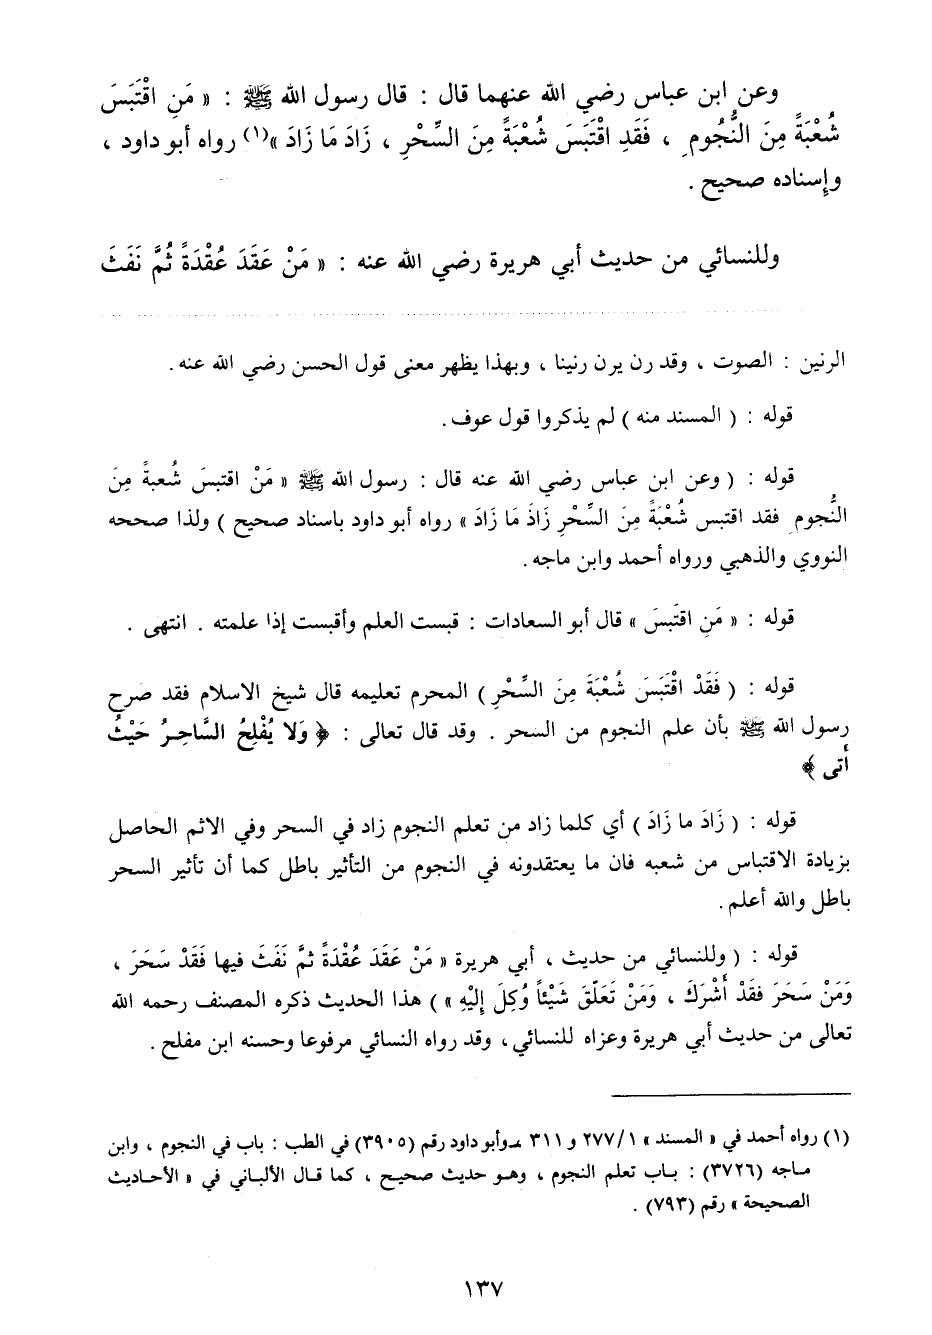 وعن ابن عباس رضي الله عنهما قال : قال رسول الله ﷺ : « مَنِ اقْتَبَسَ
شُعْبَةً مِنَ النُّجُومِ ، فَقَدِ اقْتَبَسَ شُعْبَةً مِنَ السِّحْرِ ، زَادَ مَا زَادَ »(١) رواه أبو داود ،
وإسناده صحيح .
وللنسائي من حديث أبي هريرة رضي الله عنه : « مَنْ عَقَدَ عُقْدَةً ثُمَّ نَفَثَ
الرنين : الصوت ، وقد رن يرن رنينا ، وبهذا يظهر معنى قول الحسن رضي الله عنه .
قوله : ( المسند منه ) لم يذكروا قول عوف .
قوله : ( وعن ابن عباس رضي الله عنه قال : رسول الله ﷺ « مَنْ اقتبسَ شُعبةً مِنَ
النُّجومِ فقد اقتبس شُعْبَةً مِنَ السِّحْرِ زَادَ مَا زَادَ » رواه أبو داود باسناد صحيح ) ولذا صححه
النووي والذهبي ورواه أحمد وابن ماجه .
قوله : « مَنِ اقتَبَسَ » قال أبو السعادات : قبست العلم وأقبست إذا علمته . انتهى .
قوله : ( فَقَدْ اقْتَبَسَ شُعْبَةَ مِنَ السِّحْرِ ) المحرم تعليمه قال شيخ الاسلام فقد صرح
رسول الله ﷺ بأن علم النجوم من السحر . وقد قال تعالى : ﴿ وَلا يُفْلِحُ السَّاحِرُ حَيْثُ
أَتى ﴾
قوله : ( زَادَ ما زَادَ ) أي كلما زاد من تعلم النجوم زاد في السحر وفي الاثم الحاصل
بزيادة الاقتباس من شعبه فان ما يعتقدونه في النجوم من التأثير باطل كما أن تأثير السحر
باطل والله أعلم .
قوله : ( وللنسائي من حديث ، أبي هريرة « مَنْ عَقَدَ عُقْدَةً ثمَّ نَفَثَ فيها فَقَدْ سَحَرَ ،
وَمَنْ سَحَرَ فقَدْ أَشْرَكَ ، وَمَنْ تَعَلّقَ شَيْئاً وُكِلَ إِلَيْهِ » ) هذا الحديث ذكره المصنف رحمه الله
تعالى من حديث أبي هريرة وعزاه للنسائي ، وقد رواه النسائي مرفوعا وحسنه ابن مفلح .
(١) رواه أحمد في « المسند » ٢٧٧/١ و ٣١١ وأبو داود رقم (٣٩٠٥) في الطب : باب في النجوم ، وابن
ماجه (٣٧٢٦) : باب تعلم النجوم ، وهو حديث صحيح ، كما قال الألباني في « الأحاديث
الصحيحة » رقم (٧٩٣) .
١٣٧